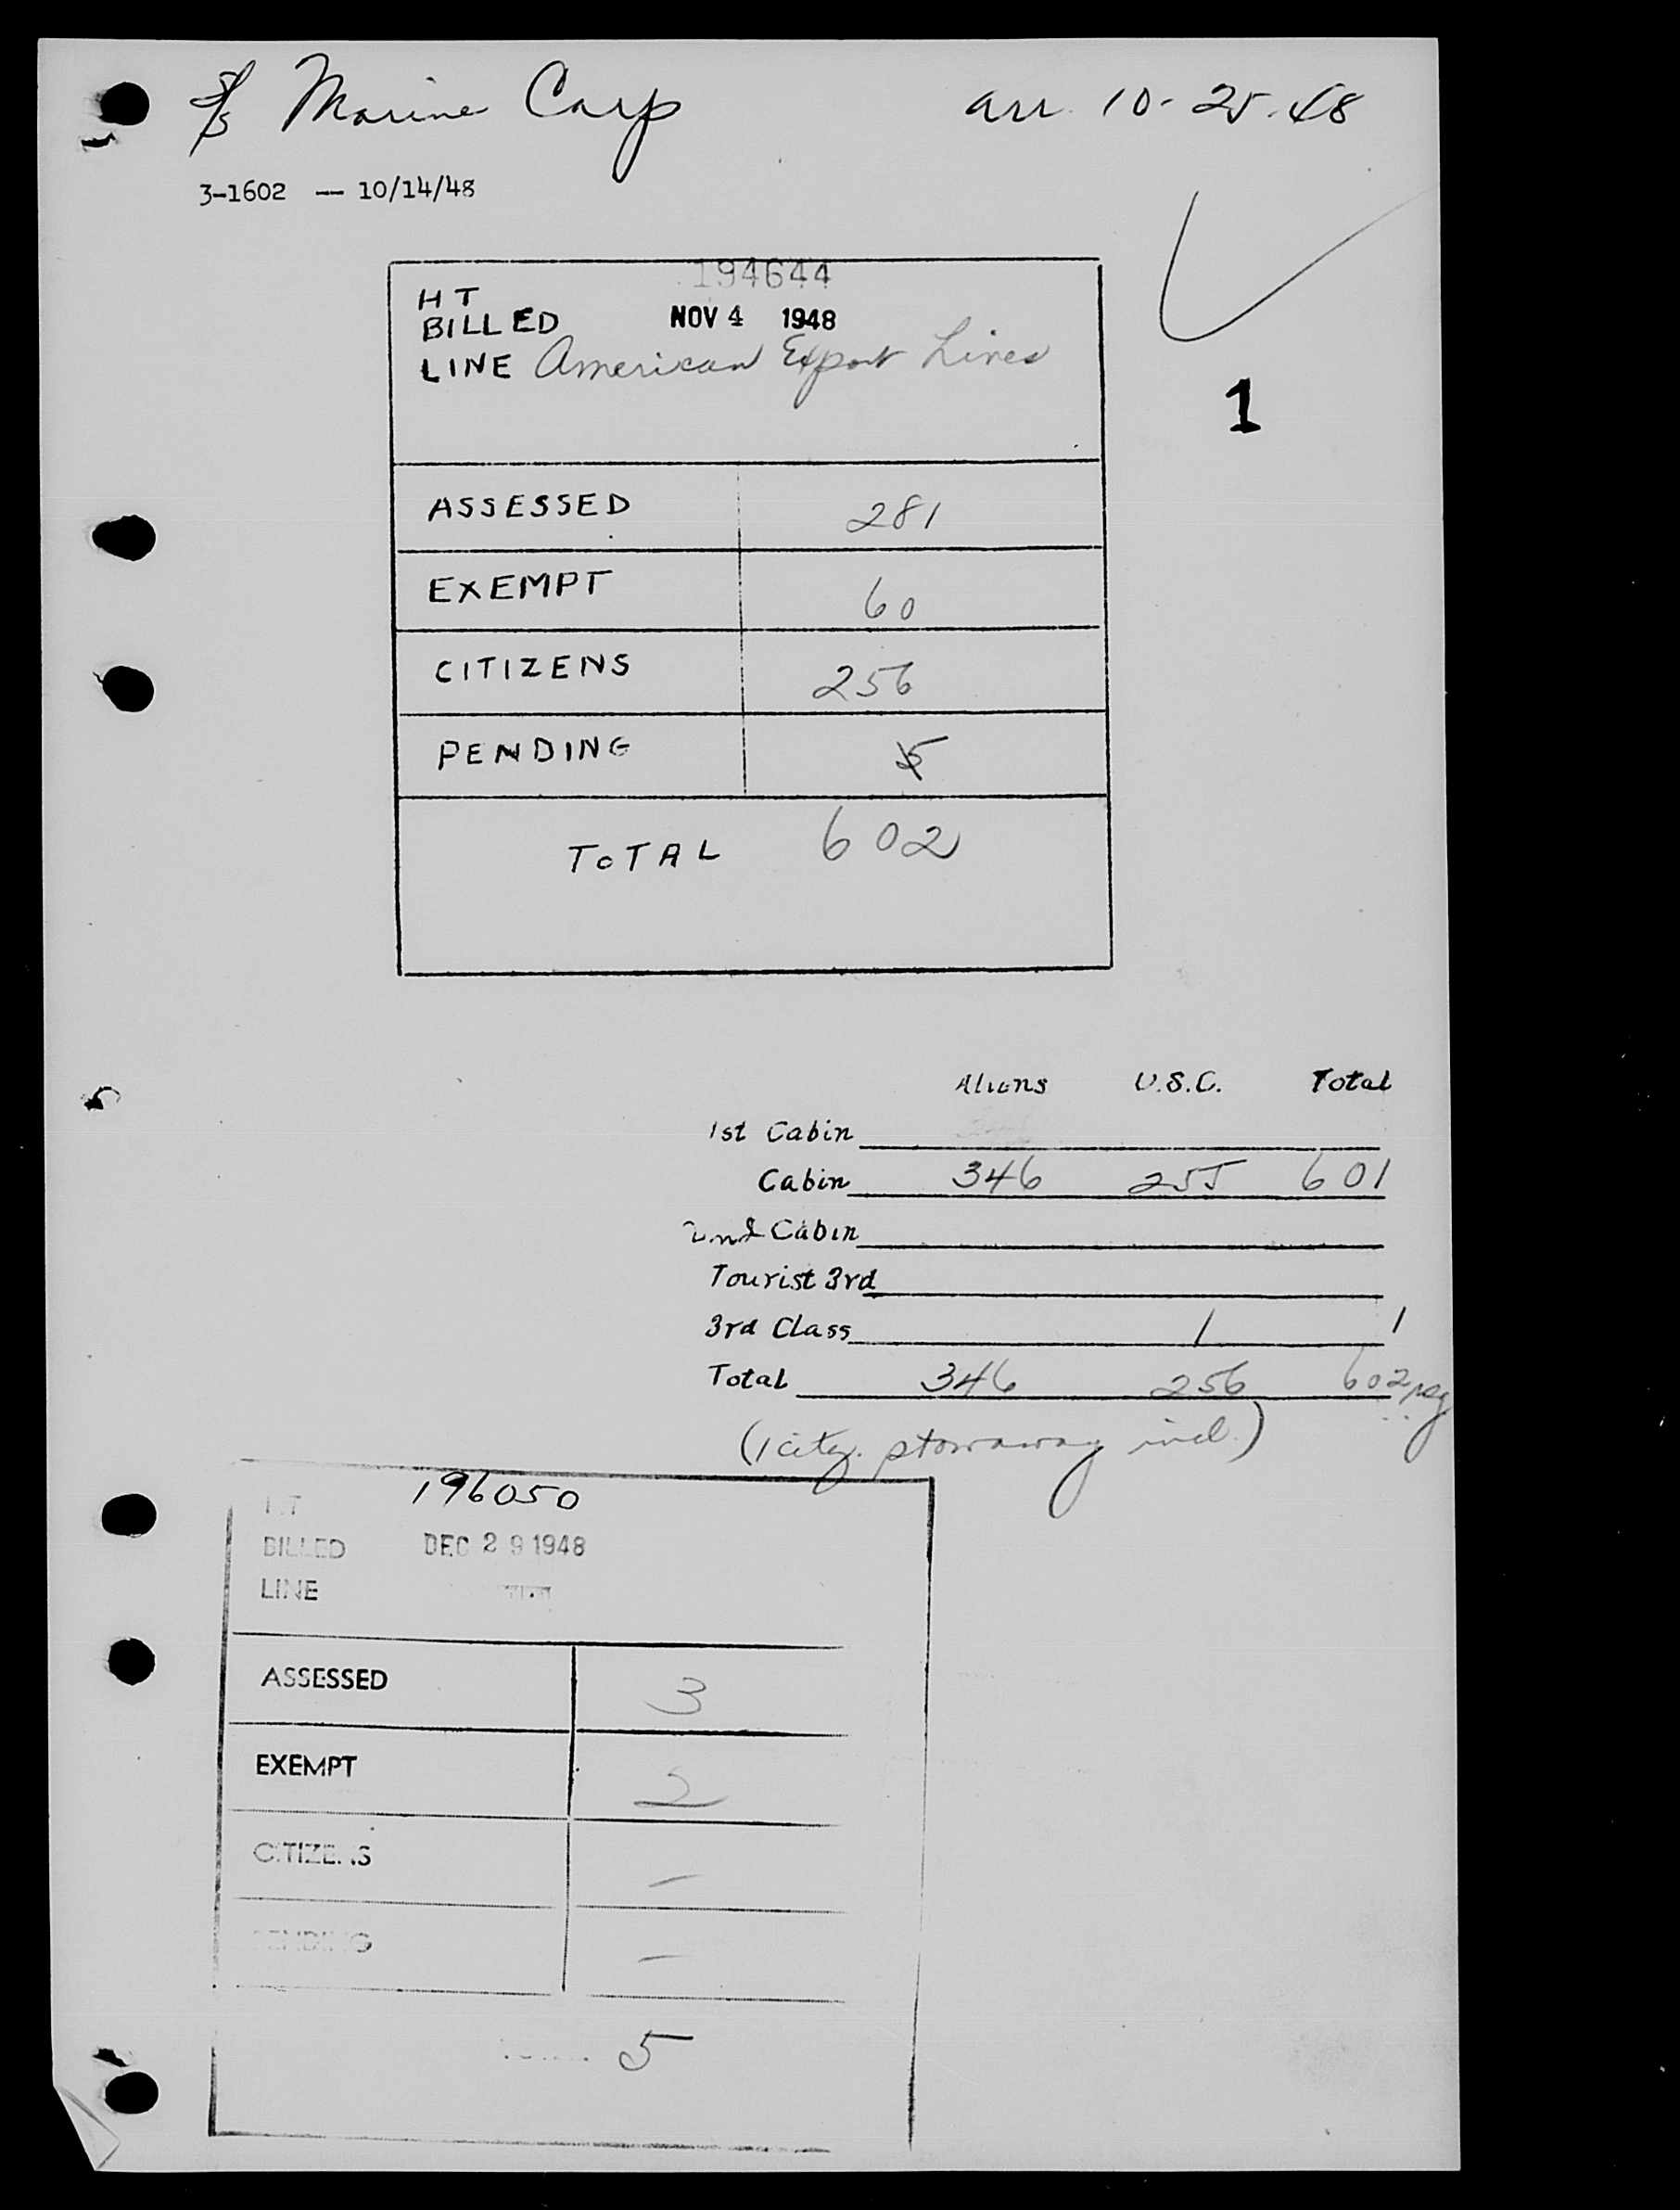 S/S Marine Carp arr. 10-25-48
3-1602 -- 10/14/48
194644
HT
BILLED NOV 4 1948
LINE American Export Lines
1
ASSESSED 281
EXEMPT 60
CITIZENS 256
PENDING 5
TOTAL 602
Aliens U.S.C. Total
1st Cabin
Cabin 346 255 601
2nd Cabin
Tourist 3rd
3rd Class 1 1
Total 346 256 602
(1 citz. stowaway incl.)
196050
BILLED DEC 29 1948
LINE
ASSESSED 3
EXEMPT 2
CITIZENS -
PENDING -
5